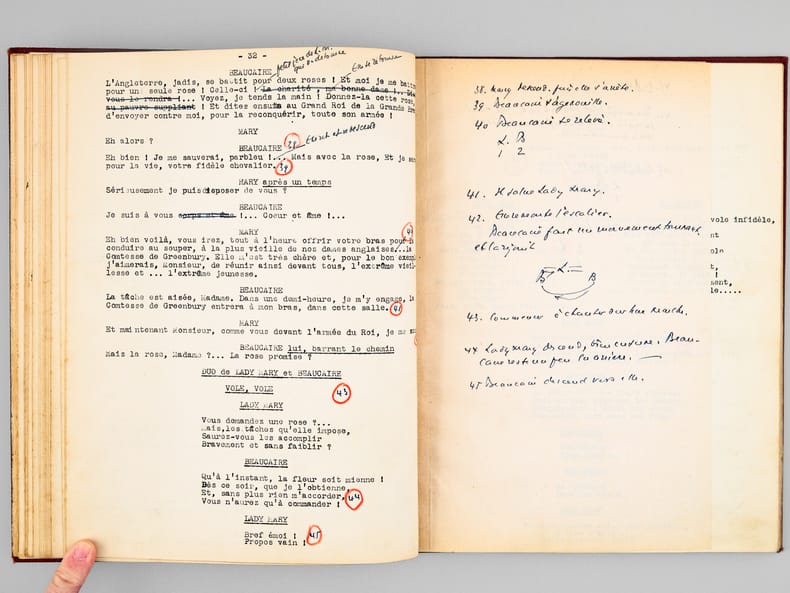 - 32 -
BEAUCAIRE
L'Angleterre, jadis, se battit pour deux roses ! Et moi je me battrai
pour un seule rose ! Celle-ci ! La charité, ma bonne dame !..
vous le rendra !... Voyez, je tends la main ! Donnez-la cette rose,
au pauvre suppliant ! Et dites ensuite au Grand Roi de la Grande
d'envoyer contre moi, pour la reconquérir, toute son armée !
MARY
Eh alors ?
BEAUCAIRE 38
Eh bien ! Je me sauverai, parbleu !... Mais avec la rose, Et je
pour la vie, votre fidèle chevalier. 39
MARY après un temps
Sérieusement je puis disposer de vous ?
BEAUCAIRE
Je suis à vous corps et âme !... Coeur et âme !...
MARY
Eh bien voilà, vous irez, tout à l'heure offrir votre bras pour
conduire au souper, à la plus vieille de nos dames anglaises...la
Comtesse de Greenbury. Elle m'est très chère et, pour le bon
j'aimerais, Monsieur, de réunir ainsi devant tous, l'extrême vieil-
lesse et ... l'extrême jeunesse.
BEAUCAIRE
La tâche est aisée, Madame. Dans une demi-heure, je m'y engage, la
Comtesse de Greenbury entrera à mon bras, dans cette salle. 41
MARY
Et maintenant Monsieur, comme vous devant l'armée du Roi, je me
BEAUCAIRE lui, barrant le chemin
Mais la rose, Madame ?... La rose promise ?
DUO de LADY MARY et BEAUCAIRE
VOLE, VOLE 43
LADY MARY
Vous demandez une rose ?...
Mais,les tâches qu'elle impose,
Saurez-vous les accomplir
Bravement et sans faiblir ?
BEAUCAIRE
Qu'à l'instant, la fleur soit mienne !
Dès ce soir, que je l'obtienne,
Et, sans plus rien m'accorder, 44
Vous n'aurez qu'à commander !
LADY MARY
Bref émoi ! 45
Propos vain !
38. Mary descend, puis elle s'arrête.
39. Beaucaire s'agenouille.
40 Beaucaire se relève.
L. B
1 2
41. Il salue Lady Mary.
42. l'escalier.
Beaucaire fait un mouvement tournant
et la rejoint
L
B B
43. Commencer à chanter sur les marches.
44 Lady Mary descend, Beau-
caire reste un peu en arrière.
45 Beaucaire descend vers elle.
vole infidèle,
nt
ole
t,
ment,
le.....